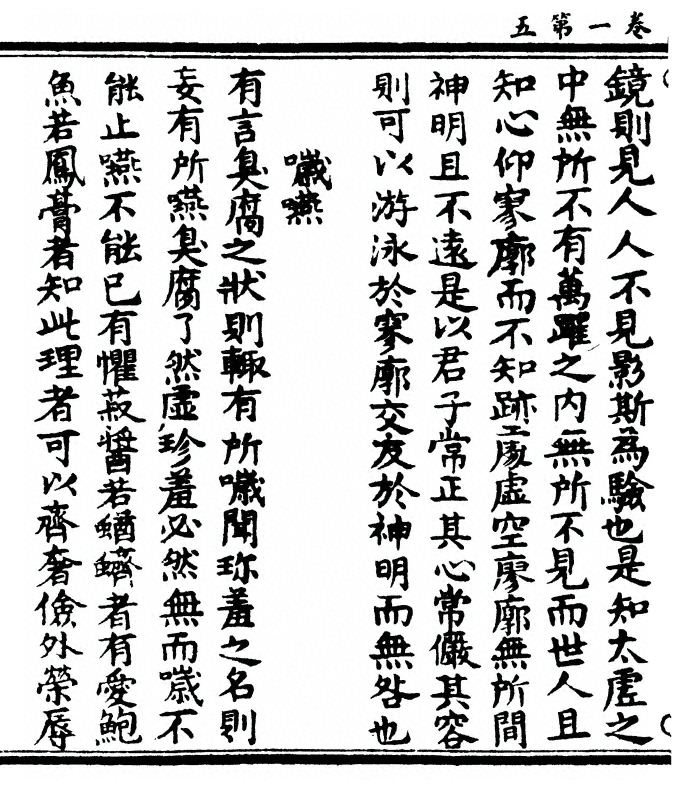 卷一第五
鏡則見人人不見影斯為驗也是知太虛之
中無所不有萬躍之內無所不見而世人且
知心仰寥廓而不知跡處虛空寥廓無所間
神明且不遠是以君子常正其心常儼其容
則可以游泳於寥廓交友於神明而無咎也
噦嚥
有言臭腐之狀則輒有所噦聞珎羞之名則
妄有所嚥臭腐了然虛珍羞必然無而噦不
能止嚥不能已有懼菽醬若蝤蠐者有愛鮑
魚若鳳膏者知此理者可以齊奢儉外榮辱